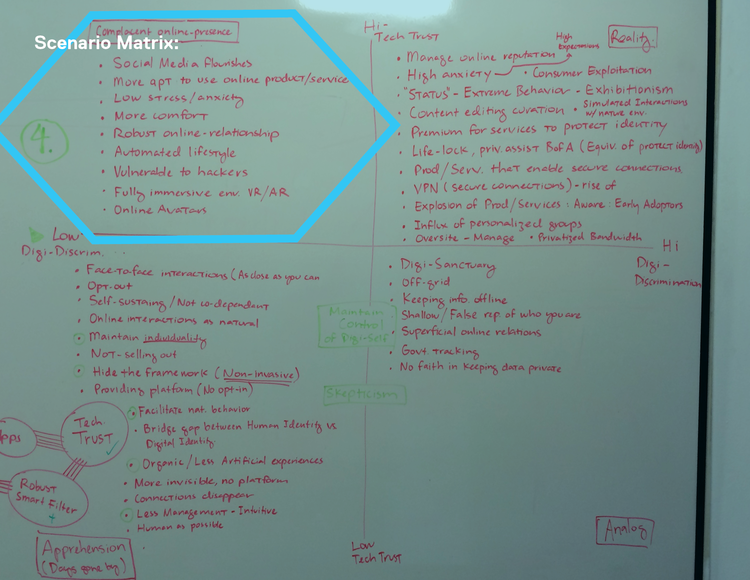 Scenario Matrix:
Complacent online-presence
Social Media Flourishes
More apt to use online product/service
Low stress/anxiety
More comfort
Robust online-relationship
Automated lifestyle
Vulnerable to hackers
Fully immersive env. VR/AR
Online Avatars
4.
Hi-
Tech Trust
High
Expectations
Reality
Manage online reputation
High anxiety
Consumer Exploitation
"Status" - Extreme Behavior - Exhibitionism
Content editing curation
Simulated Interactions
w/nature env.
Premium for services to protect identity
Life-lock, priv. assist BofA (Equiv. of protect identity)
Prod/Serv. that enable secure connections.
VPN (secure connections) - rise of
Explosion of Prod/Services: Aware: Early Adoptors
Influx of personalized groups
Oversite - Manage • Privatized Bandwidth
Low-
Digi-Discrim.
Hi
Digi-
Discrimination
Face-to-face interactions (As close as you can
Opt-out
Self-sustaing/Not co-dependant
Online interactions as natural
Maintain individuality
Not-selling out
Hide the framework (Non-Invasive)
Providing platform (No opt-in)
Facilitate nat. behavior
Bridge gap between Human Identity vs
Digital Identity
Organic/Less Artificial experiences
More invisible, no platform
Connections disappear
Less Management - Intuitive
Human as possible
Apps
Tech.
Trust
Robust
Smart Filter
Apprehension
(Days gone by)
Digi-Sanctuary
Off-grid
Keeping info. offline
Shallow/False rep. of who you are
Superficial online relations
Govt. tracking
No faith in keeping data private
Maintain
Control
of Digi-Self
Skepticism
Low
Tech Trust
Analog